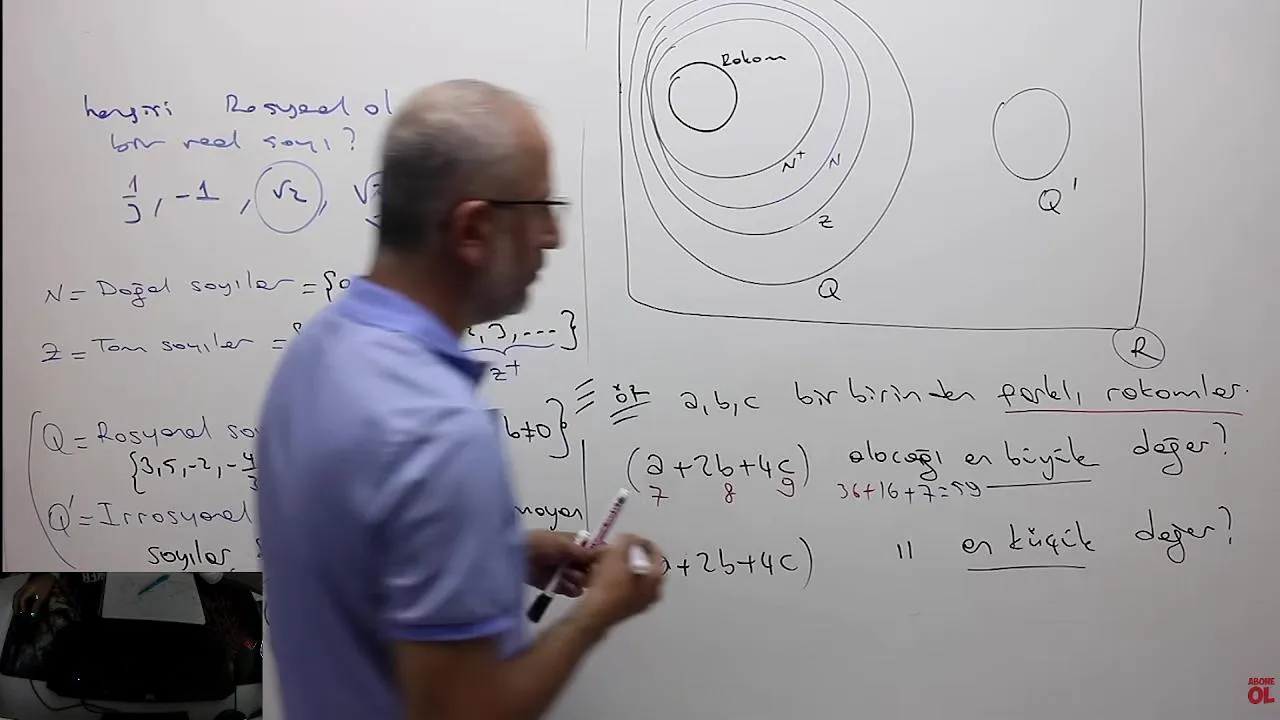 hangisi Rasyonel ol
bir reel sayı?
1/3, -1, √2, √
N = Doğal sayılar = {0
Z = Tam sayılar = { 2, 3, .... }
Z⁺
Q = Rasyonel sa b≠0}
{3, 5, -2, -4/3
Q' = İrrasyonel mayan
sayılar
Rakam
N⁺
N
Z
Q
Q'
R
ÖR a, b, c birbirinden farklı rakamlar.
(a + 2b + 4c) alacağı en büyük değer?
7 8 9 36+16+7=59
a + 2b + 4c) 〃 en küçük değer?
ABONE
OL